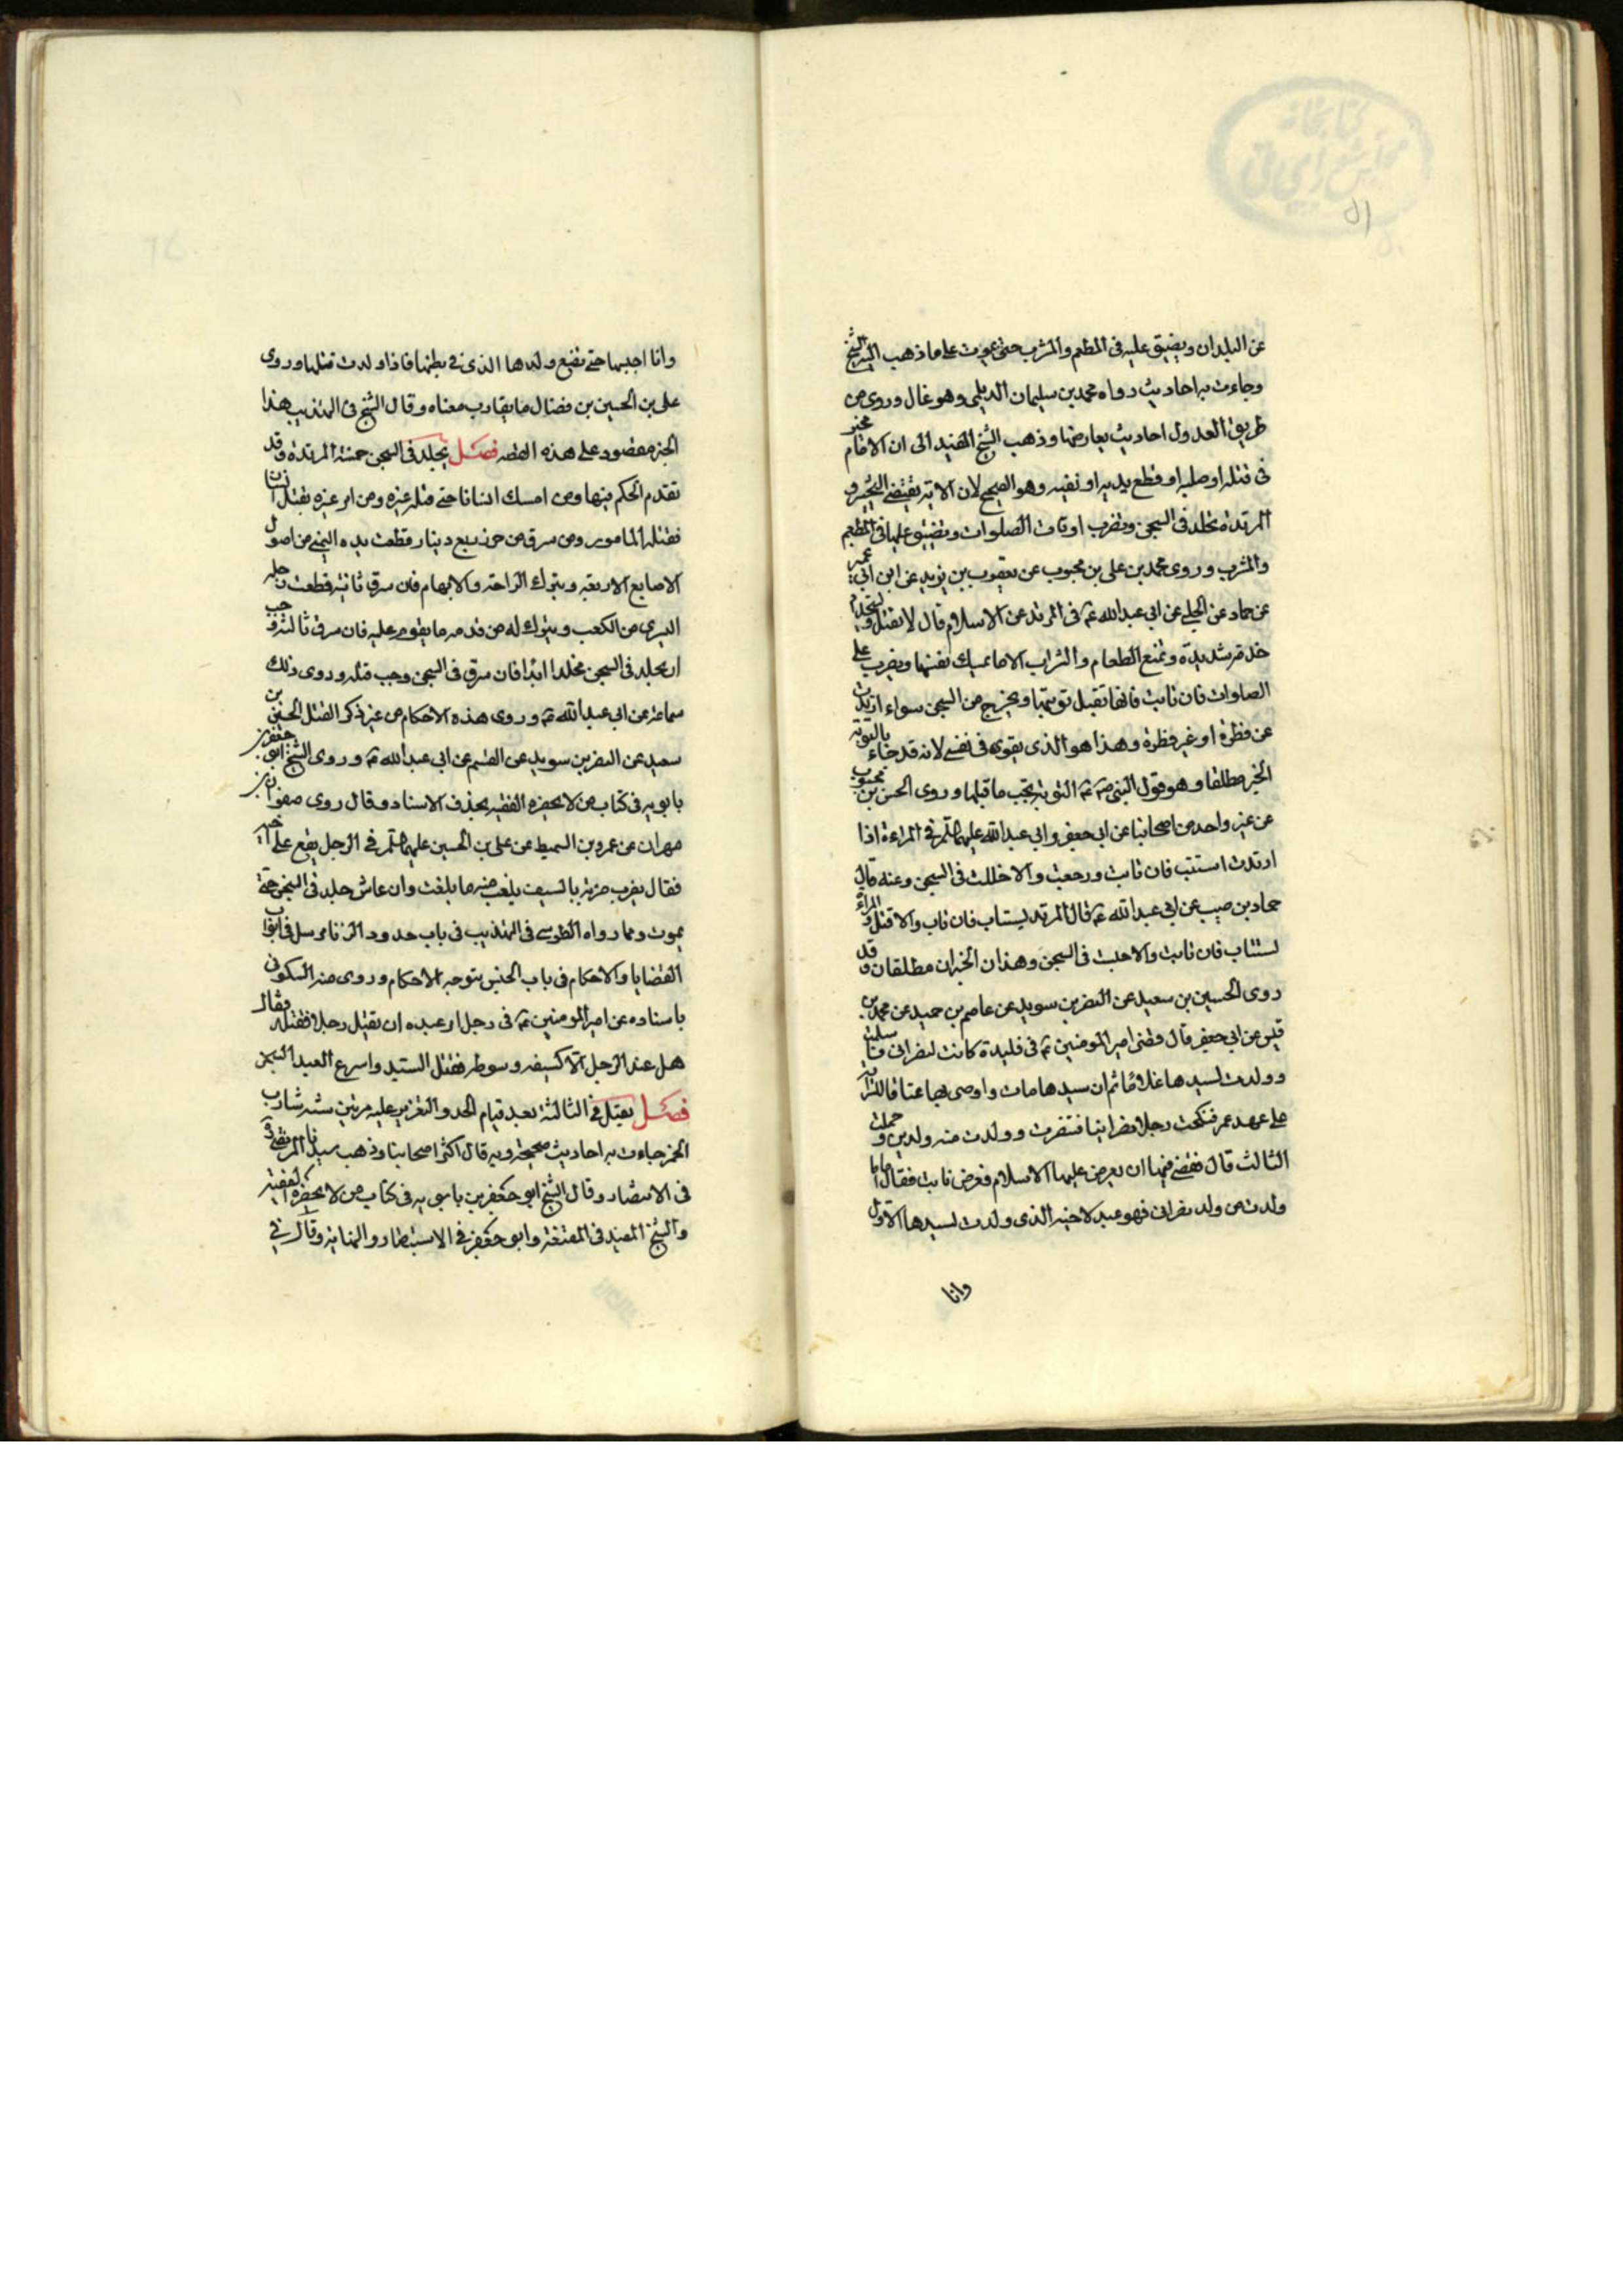 كتابخانه
مجلس شورای ملی
۵۱
عن البلدان ويضيق عليه في المطعم والمشرب حتى يموت على ما ذهب اليه الشيخ
وجاءت به احاديث رواه محمد بن سليمان الديلمى وهو غال وروى من
طريق العدول احاديث يعارضها وذهب الشيخ المفيد الى ان الامام مخير
فى قتله او صلبه او قطع يديه او نفيه وهو الصحيح لان الاية يقتضى التخيير و
المرتدة تخلد فى السجن وتضرب اوقات الصلوات وتضيق عليها فى المطعم
والمشرب وروى محمد بن على بن محبوب عن يعقوب بن يزيد عن ابن ابى عمير
عن حماد عن الحلبى عن ابى عبدالله ع فى المرتدة عن الاسلام قال لا تقتل وتستخدم
خدمة شديدة وتمنع الطعام والشراب الا ما يمسك نفسها وتضرب على
الصلوات فان تابت فانها تقبل توبتها ويخرج من السجن سواء ارتدت
عن فطرة او غير فطرة وهذا هو الذى يقوى فى نفسى لانه قد جاء بالتوبة
الخبر مطلقا وهو قول النبى ص ع التوبة تجب ما قبلها وروى الحسن بن محبوب
عن غير واحد من اصحابنا عن ابى جعفر وابى عبدالله عليهما السلم فى المراءة اذا
ارتدت استتب فان تابت ورجعت والا خللت فى السجن وعنه قال
حماد بن صيب عن ابى عبدالله ع قال المرتد يستاب فان تاب والا قتل و المراة
تستتاب فان تابت والا حبست فى السجن وهذان الخبران مطلقان وقد
روى الحسين بن سعيد عن النضر بن سويد عن عاصم بن حميد عن محمد بن
قيس عن ابى جعفر قال قضى امير المومنين ع فى قليدة كانت لنصرانى فاسلمت
وولدت لسيدها غلاما ثم ان سيدها مات واوصى بها عتاقا للسراية
على عهد عمر فنكحت رجلا نصرانيا فتنصرت وولدت منه ولدين وحملت
الثالث قال فقضى فيها ان يعرض عليها الاسلام فعرض فابت فقال اما ما
ولدت من ولد نصرانى فهو عبد لاخيه الذى ولدت لسيدها الاول
وانا
وانا احبسها حتى تضع ولدها الذى فى بطنها فاذا ولدت قتلها وروى
على بن الحسين بن فضال ما يقارب معناه وقال الشيخ فى التهذيب هذا
الخبر مقصور على هذه القصه فصل يخلد فى السجن خمسة المرتدة وقد
تقدم الحكم فيها ومن امسك انسانا حتى قتله غيره ومن امر غيره بقتل انسان
فقتله المامور ومن سرق من حرز ربع دينار قطعت يده اليمنى من اصول
الاصابع الاربعة ويترك الراحة والابهام فان سرق ثانية قطعت رجله
اليسرى من الكعب ويترك له من قدمه ما يقوم عليه فان سرق ثالثة وجب
ان يخلد فى السجن مخلدا ابدا فان سرق فى السجن وجب قتله وروى ذلك
سماعة عن ابى عبدالله ع وروى هذه الاحكام من غير ذكر القتل الحسين بن
سعيد عن النضر بن سويد عن القسم عن ابى عبدالله ع وروى الشيخ ابو جعفر بن
بابويه فى كتاب من لا يحضره الفقيه بحذف الاسناد وقال روى صفوان بن
مهران عن عمرو بن السميط عن على بن الحسين عليهما السلم فى الرجل يقع على اخته
فقال يضرب ضربة بالسيف يلغب منه ما بلغت وان عاش خلد فى السجن حتى
يموت ومما رواه الطوسى فى التهذيب فى باب حدود الزنا مرسل فى ابواب
القضايا والاحكام فى باب الحبس بتوجه الاحكام وروى عنه السكونى
باسناده عن امير المومنين ع فى رجل امر عبده ان يقتل رجلا فقتله فقال
هل عند الرجل الا كسيفه وسوطه فقتل السيد واسرع العبد السجن
فصل يقتل فى الثالثة بعد قيام الحد والتعزير عليه مرتين ستة شارب
الخمر جاءت به احاديث صحيحة وبه قال اكثر اصحابنا وذهب سيدنا المرتضى و
فى الانتصار وقال الشيخ ابو جعفر بن بابويه فى كتاب من لا يحضره الفقيه
والشيخ المفيد فى المقنعة وابو جعفر فى الاستبصار والنهاية وقال فى